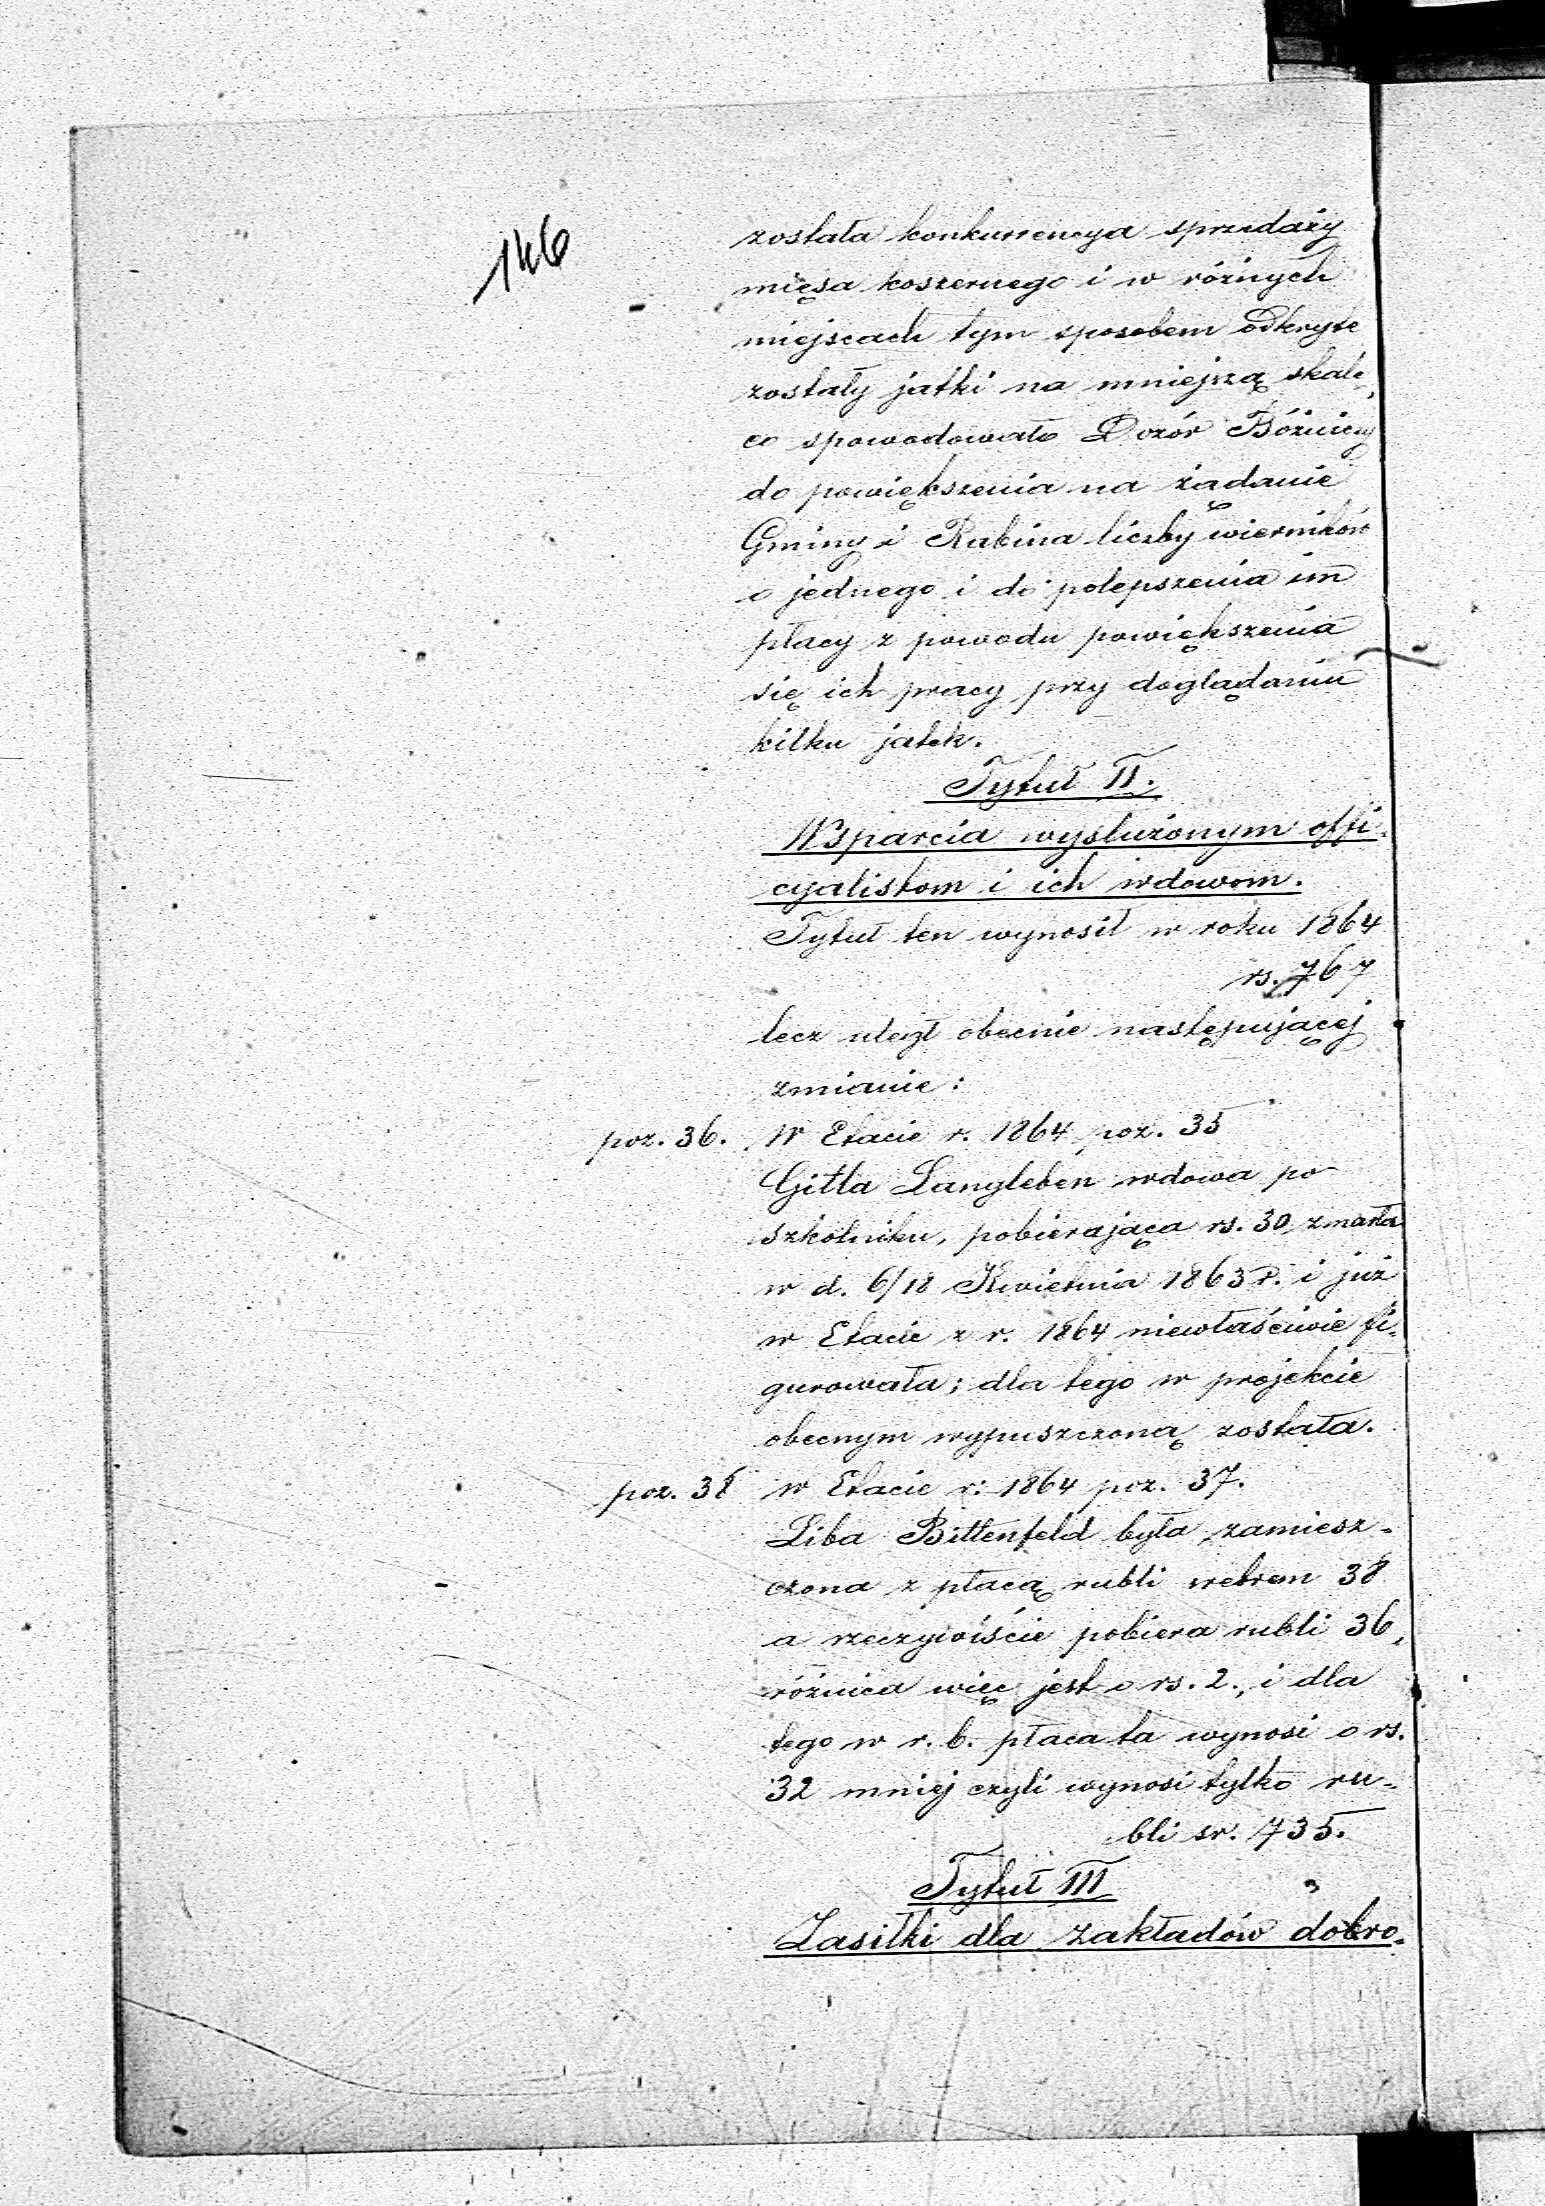 146
została konkurrencya sprzedaży
mięsa koszernego i w różnych
miejscach tym sposobem odkryte
zostały jatki na mniejszą skalę,
co spowodowało Dozór Bóżniczy
do powiększenia na żądanie
Gminy i Rabina liczby wierników
o jednego i do polepszenia im
płacy z powodu powiększenia
się ich pracy przy doglądaniu
kilku jatek.
Tytuł II.
Wsparcia wysłużonym offi-
cyalistom i ich wdowom.
Tytuł ten wynosił w roku 1864
rs. 767
lecz uległ obecnie następującej
zmianie:
poz. 36. W Etacie r. 1864 poz. 35
Gitla Langleben wdowa po
szkolniku, pobierająca rs. 30, zmarła
w d. 6/18 Kwietnia 1863 r. i już
w Etacie z r. 1864 niewłaściwie fi-
gurowała; dla tego w projekcie
obecnym wypuszczoną została.
poz. 38 w Etacie r. 1864 poz. 37.
Liba Bittenfeld była zamiesz-
czona z płacą rubli srebrem 38
a rzeczywiście pobiera rubli 36,
różnica więc jest o rs. 2., i dla
tego w r. b. płaca ta wynosi o rs.
32 mniej czyli wynosi tylko ru-
bli sr. 735.
Tytuł III
Zasiłki dla zakładów dobro-